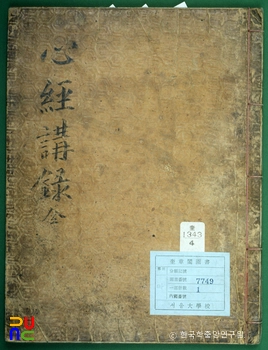 心經講錄 全
古
1343
4
7749
1
서울大學校
© 한국학중앙연구원